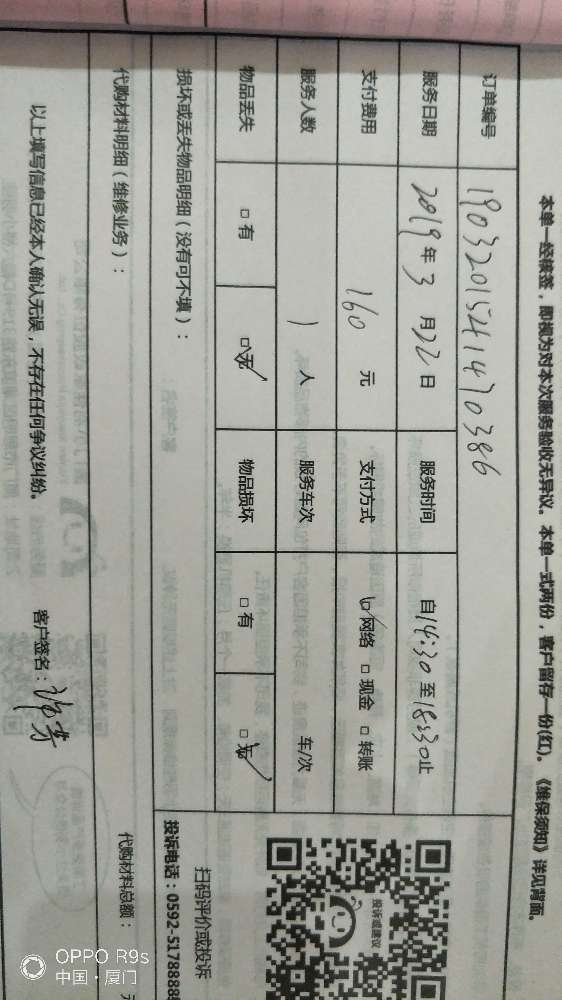 本单一经核签，即视为对本次服务验收无异议。本单一式两份，客户留存一份(红)。《维保须知》详见背面。
订单编号 1903201541470386
服务日期 2019年3月22日 服务时间 自14:30至18:30止
支付费用 160 元 支付方式 □网络 □现金 □转账
服务人数 1 人 服务车次 车/次
物品丢失 □有 □无 物品损坏 □有 □无
损坏或丢失物品明细（没有可不填）：
投诉或建议
扫码评价或投诉
投诉电话：0592-5178888
代购材料明细（维修业务）：
代购材料总额：
以上填写信息已经本人确认无误，不存在任何争议纠纷。 客户签名：
OPPO R9s
中国·厦门